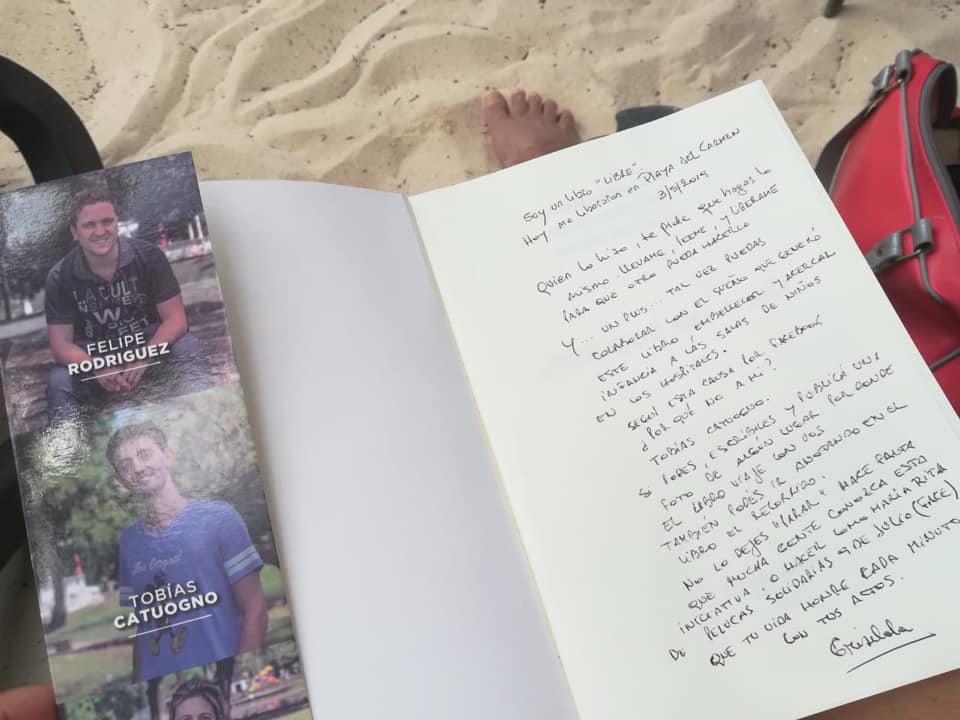 LA CULT
W
FELIPE
RODRIGUEZ
TOBÍAS
CATUOGNO
Soy un libro "LIBRE"
Hoy me liberaron en PLAYA DEL CARMEN
3/5/2019
Quien lo hizo, te pide que hagas lo
mismo. LLEVAME, LEEME, Y LIBERAME
PARA QUE OTRO PUEDA HACERLO
Y... UN PLUS... TAL VEZ PUEDAS
COLABORAR CON EL SUEÑO QUE GENERÓ
ESTE LIBRO: EMBELLECER Y ACERCAR
INFANCIA A LAS SALAS DE NIÑOS
EN LOS HOSPITALES.
SEGUÍ ESTA CAUSA POR FACEBOOK
¿POR QUÉ NO A MI?
TOBÍAS CATUOGNO.
SI PODES, ESCRIBILES Y PUBLICÁ UNA
FOTO DE ALGÚN LUGAR POR DONDE
EL LIBRO VIAJE CON VOS
TAMBIÉN PODÉS IR ANOTANDO EN EL
LIBRO EL RECORRIDO.
NO LO DEJES "PARAR" HACE FALTA
QUE MUCHA GENTE CONOZCA ESTA
INICIATIVA O HACER COMO MARÍA RITA
DE PELUCAS SOLIDARIAS 9 DE JULIO (FACE)
QUE TU VIDA HONRE CADA MINUTO
CON TUS ACTOS.